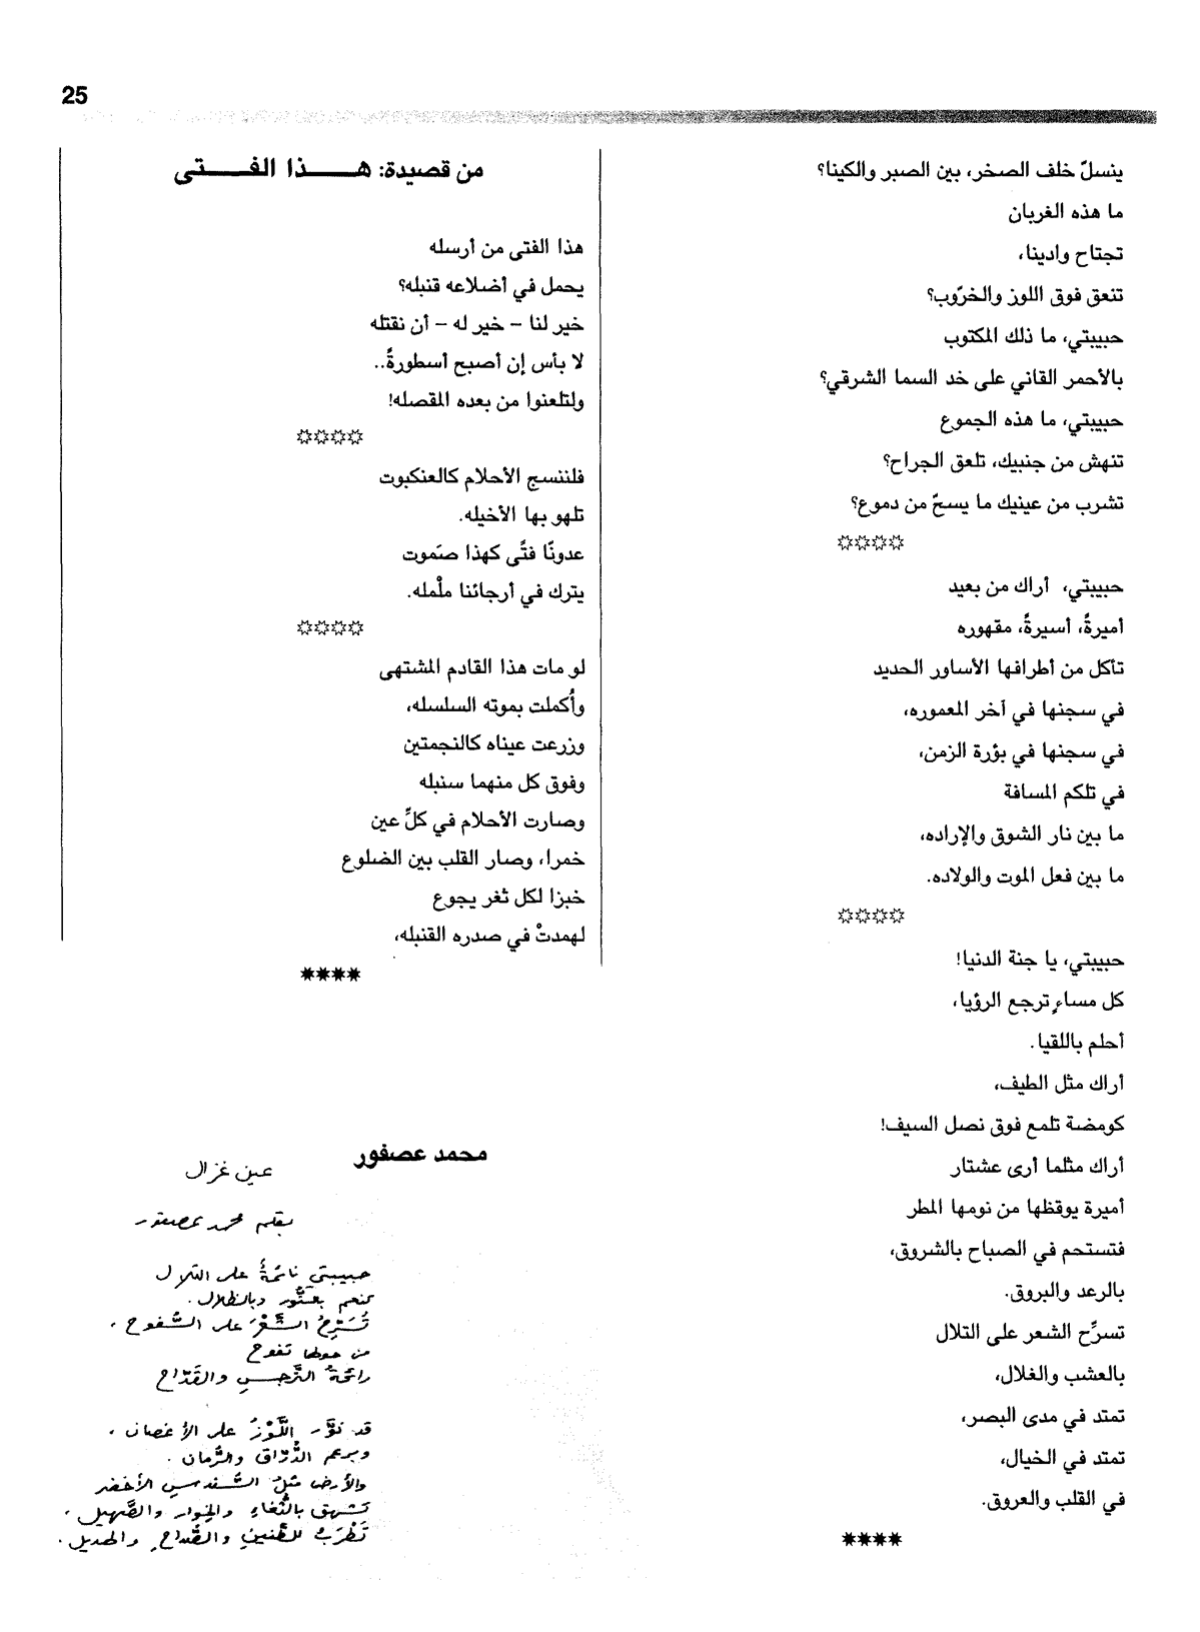 25
ينسلّ خلف الصخر، بين الصبر والكينا؟
ما هذه الغربان
تجتاح وادينا،
تنعق فوق اللوز والخرّوب؟
حبيبتي، ما ذلك المكتوب
بالأحمر القاني على خد السما الشرقي؟
حبيبتي، ما هذه الجموع
تنهش من جنبيك، تلعق الجراح؟
تشرب من عينيك ما يسحّ من دموع؟
☼☼☼☼
حبيبتي، أراك من بعيد
أميرةً، أسيرةً، مقهوره
تأكل من أطرافها الأساور الحديد
في سجنها في آخر المعموره،
في سجنها في بؤرة الزمن،
في تلكم المسافة
ما بين نار الشوق والإراده،
ما بين فعل الموت والولاده.
☼☼☼☼
حبيبتي، يا جنة الدنيا!
كل مساءٍ ترجع الرؤيا،
أحلم باللقيا.
أراك مثل الطيف،
كومضة تلمع فوق نصل السيف!
أراك مثلما أرى عشتار
أميرة يوقظها من نومها المطر
فتستحم في الصباح بالشروق،
بالرعد والبروق.
تسرِّح الشعر على التلال
بالعشب والغلال،
تمتد في مدى البصر،
تمتد في الخيال،
في القلب والعروق.
✷✷✷✷
من قصيدة: هـــذا الفـــتى
هذا الفتى من أرسله
يحمل في أضلاعه قنبله؟
خير لنا – خير له – أن نقتله
لا بأس إن أصبح أسطورةً..
ولتلعنوا من بعده المقصله!
☼☼☼☼
فلننسج الأحلام كالعنكبوت
تلهو بها الأخيله.
عدونّا فتًى كهذا صَموت
يترك في أرجائنا ململه.
☼☼☼☼
لو مات هذا القادم المشتهى
وأُكملت بموته السلسله،
وزرعت عيناه كالنجمتين
وفوق كل منهما سنبله
وصارت الأحلام في كلِّ عين
خمرا، وصار القلب بين الضلوع
خبزا لكل ثغر يجوع
لهمدتْ في صدره القنبله،
✷✷✷✷
محمد عصفور
عين غزال
بقلم محمد عصفور
حبيبتي نائمةٌ على التلال
تنعم وبالظلال.
تُسَرِّحُ الشَّعْرَ على السُّفوح،
من حولها تفوح
رائحةُ النَّرجسِ والقَدّاح
قد نوَّر اللَّوْزُ على الأغصان،
وبرعم الدُّرّاق والرُّمان.
والأرض مثلُ السُّندسِ الأخضر
تشهق بالثُّغاءِ والخوار والصَّهيل،
تَطْرَبُ للطَّنينِ والصُّداحِ والهديل.